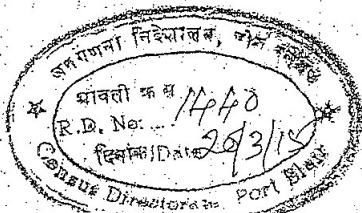 जनगणना निदेशालय, पोर्ट ब्लेयर
आवती क्र सं 1440
R.D. No:
दिनांक/Date 26/3/15
Census Directorate, Port Blair